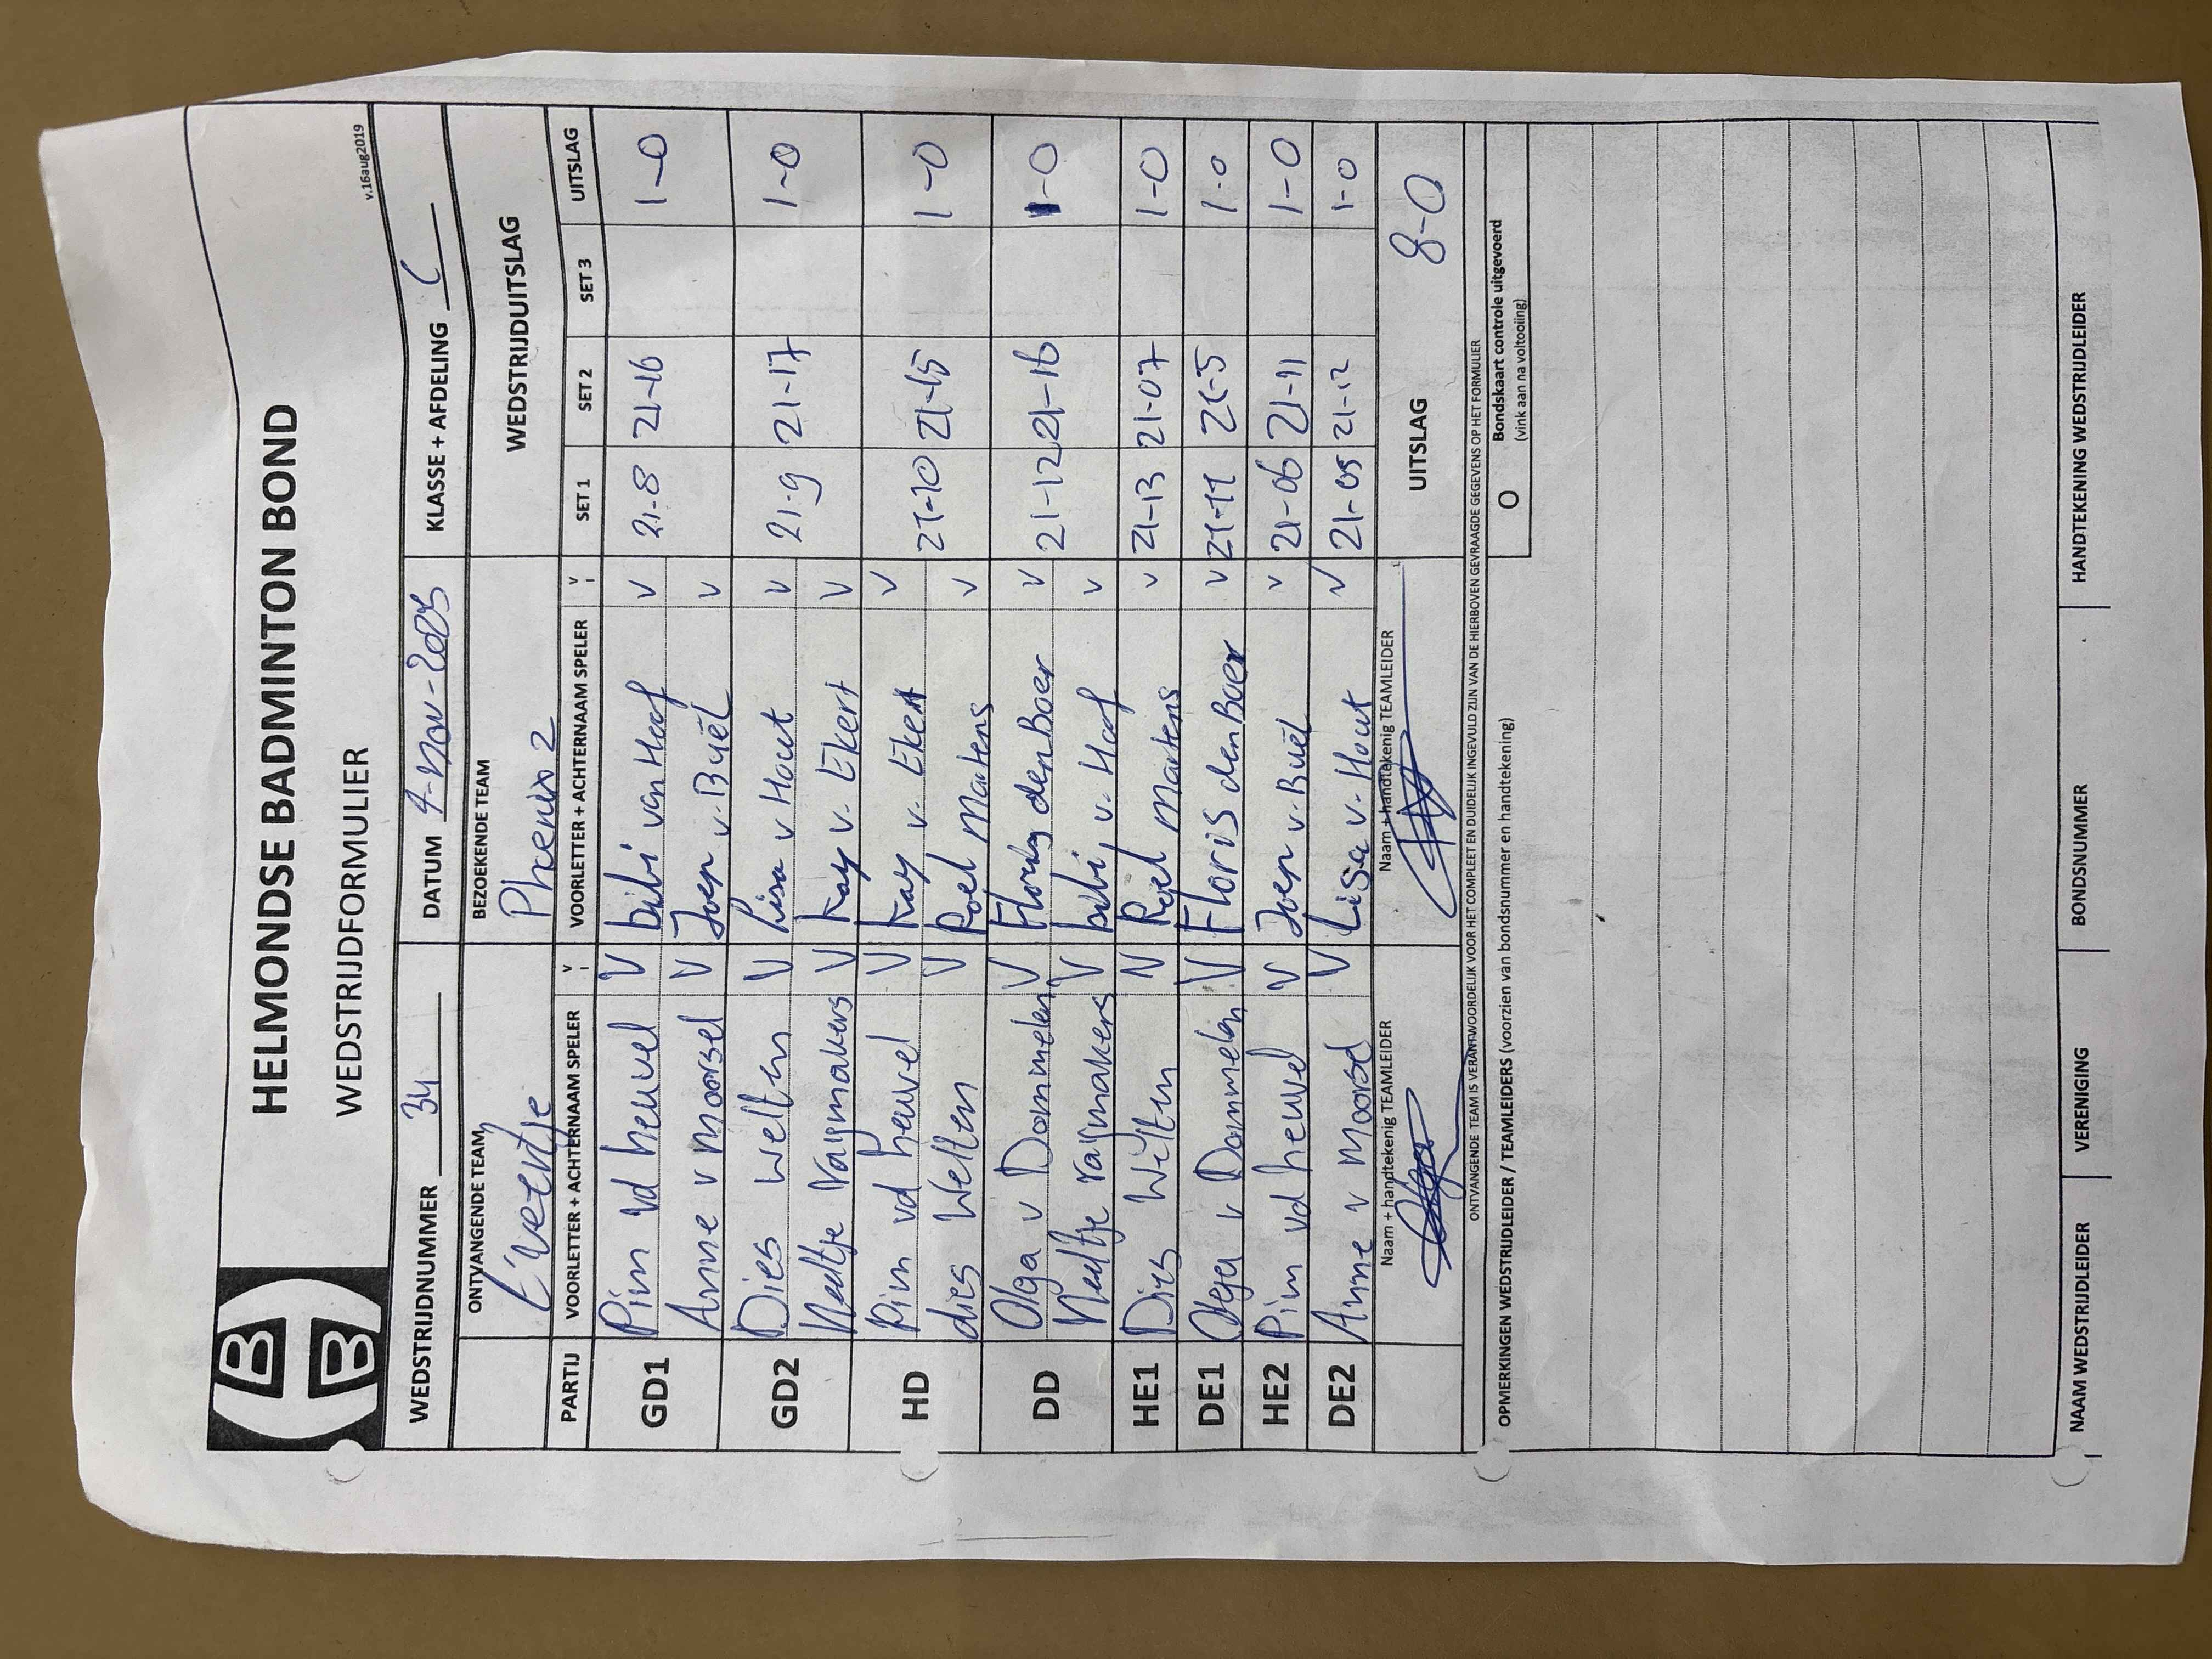 HELMONDSE BADMINTON BOND
WEDSTRIJDFORMULIER
v.16aug2019
WEDSTRIJDNUMMER 34 DATUM 4-nov-2025 KLASSE + AFDELING C
ONTVANGENDE TEAM BEZOEKENDE TEAM WEDSTRIJDUITSLAG
't Veertje Phoenix 2
PARTIJ VOORLETTER + ACHTERNAAM SPELER V VOORLETTER + ACHTERNAAM SPELER V SET 1 SET 2 SET 3 UITSLAG
GD1 Pim vd heuvel V bibi van Hoof V 21-8 21-16 1-0
Anne v Moorsel V Joep v. Buël V
GD2 Dies Welten V Lisa v Hout V 21-9 21-17 1-0
Neeltje Raijmakers V Kay v. Ekert V
HD Pim vd heuvel V Kay v. Ekert V 21-10 21-15 1-0
dies Welten V Roel Martens V
DD Olga v Dommelen V den Boer V 21-12 21-16 1-0
Neeltje raijmakers V bibi v. Hoof V
HE1 Dies Welten V Roel Martens V 21-13 21-07 1-0
DE1 Olga v Dommelen V Floris den Boer V 21-11 21-5 1-0
HE2 Pim vd heuvel V Joep v. Buël V 21-06 21-11 1-0
DE2 Anne v Moorsel V Lisa v. Hout V 21-05 21-12 1-0
Naam + handtekenig TEAMLEIDER Naam + handtekenig TEAMLEIDER UITSLAG 8-0
ONTVANGENDE TEAM IS VERANTWOORDELIJK VOOR HET COMPLEET EN DUIDELIJK INGEVULD ZIJN VAN DE HIERBOVEN GEVRAAGDE GEGEVENS OP HET FORMULIER
OPMERKINGEN WEDSTRIJDLEIDER / TEAMLEIDERS (voorzien van bondsnummer en handtekening)
O Bondskaart controle uitgevoerd
(vink aan na voltooiing)
NAAM WEDSTRIJDLEIDER VERENIGING BONDSNUMMER HANDTEKENING WEDSTRIJDLEIDER